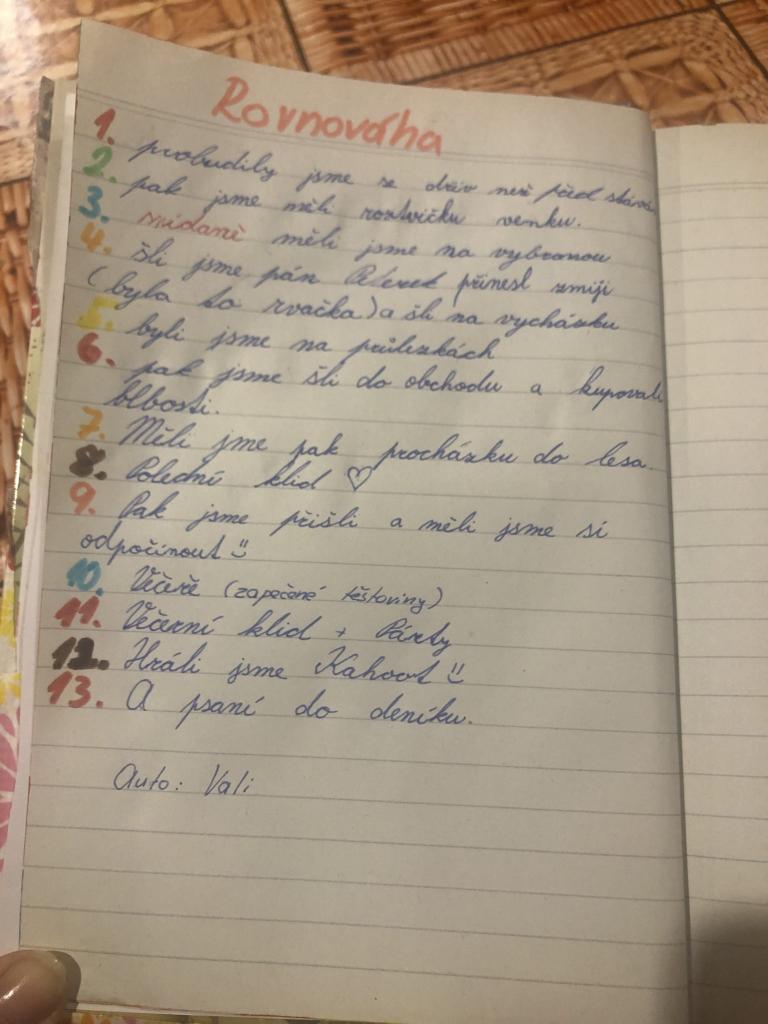 Rovnováha
1. probudily jsme se dřív než před stává
2. pak jsme měli roztvičku venku.
3. snídaně měli jsme na vybranou
4. šli jsme pán přinesl zmiji
(byla to rvačka) a šli na vycházku
5. byli jsme na průlezkách
6. pak jsme šli do obchodu a kupovali
blbosti.
7. Měli jme pak procházku do lesa.
8. Polední klid ♡
9. Pak jsme přišli a měli jsme si
odpočinout
10. Večeře (zapečené těstoviny)
11. Večerní klid + Párty
12. Hráli jsme Kahoot
13. A psaní do deníku.
Auto: Vali